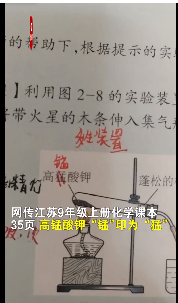 的帮助下,根据提示的实
】利用图 2-8 的实验装
带火星的木条伸入集气
装置
锰
高锰酸钾
蓬松的
网传江苏9年级上册化学课本
35页 高锰酸钾 “锰”印为 “猛”